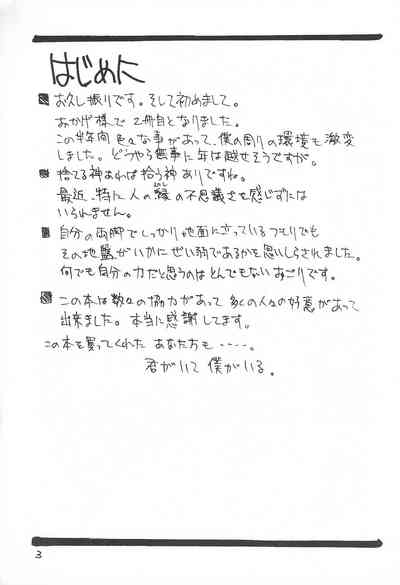 はじめに
お久し振りです。そして初めまして。
おかげ様で2冊目となりました。
この半年間色々な事があって、僕の周りの環境も激変
しました。どうやら無事に年は越せそうですが。
捨てる神あれば拾う神ありですね。
最近、特に人の縁の不思議さを感じずには
いられません。
自分の両脚でしっかり地面に立っているつもりでも
その地盤がいかにぜい弱であるかを思いしらされました。
何でも自分の力だと思うのはとんでもないおごりです。
この本は数々の協力があって多くの人々の好意があって
出来ました。本当に感謝してます。
この本を買ってくれたあなた方も・・・・。
君がいて僕がいる。
3